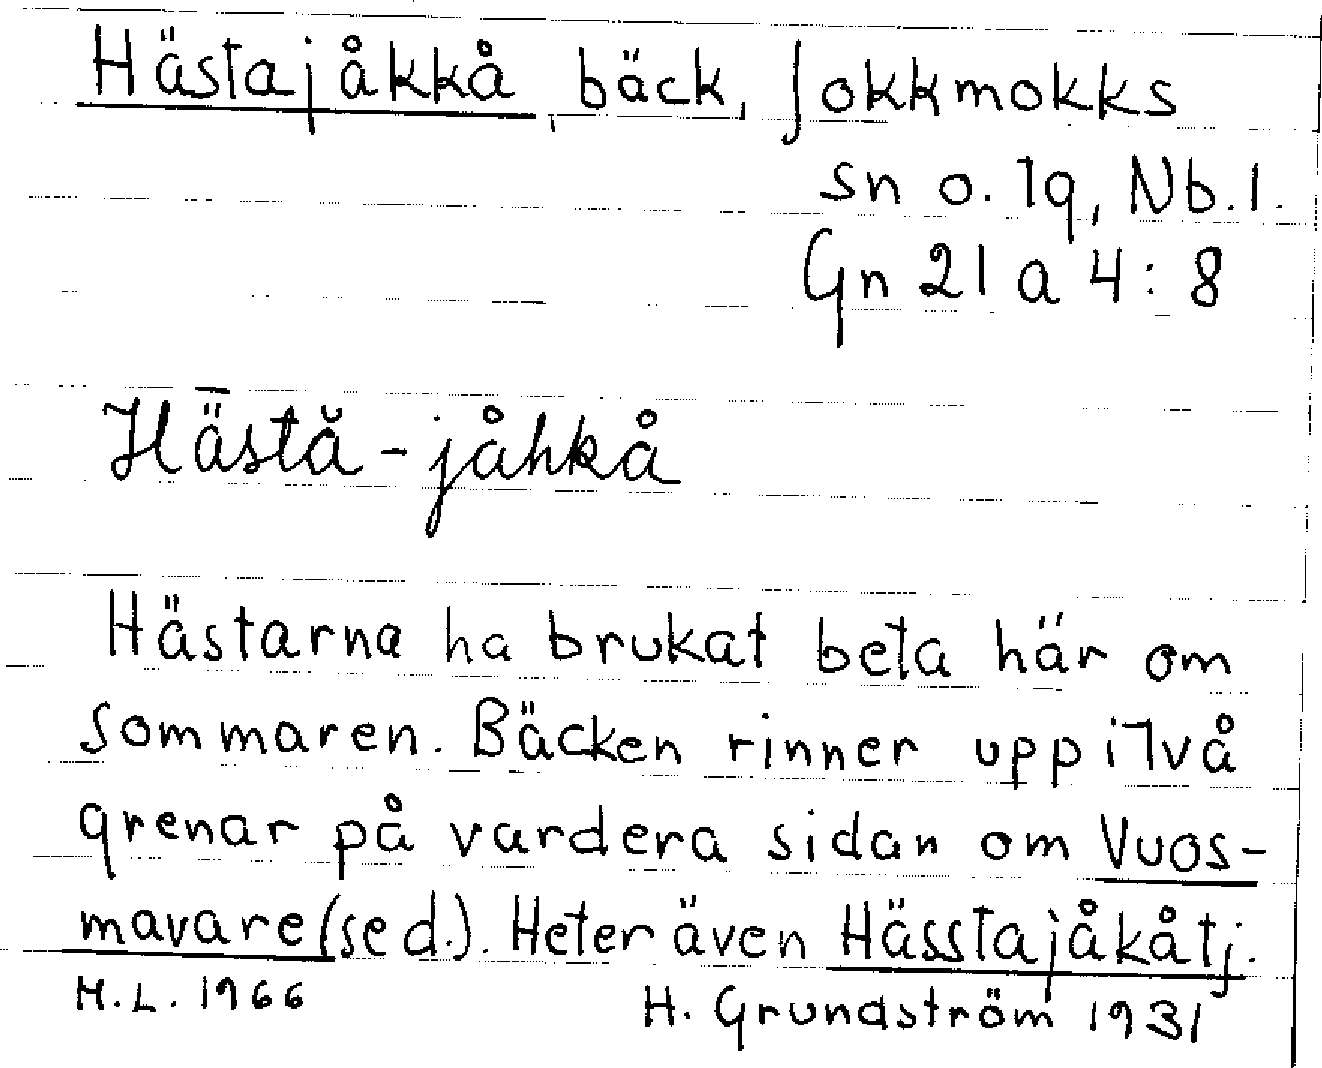 Hästajåkkå, bäck, Jokkmokks
sn o. lg, Nb.l.
Gn 21 a 4:8
Hǟstă-jåhkå
Hästarna ha brukat beta här om
sommaren. Bäcken rinner upp i två
grenar på vardera sidan om Vuos-
mavare (se d.). Heter även Hässtajåkåtj.
H.L. 1966 H. Grundström 1931